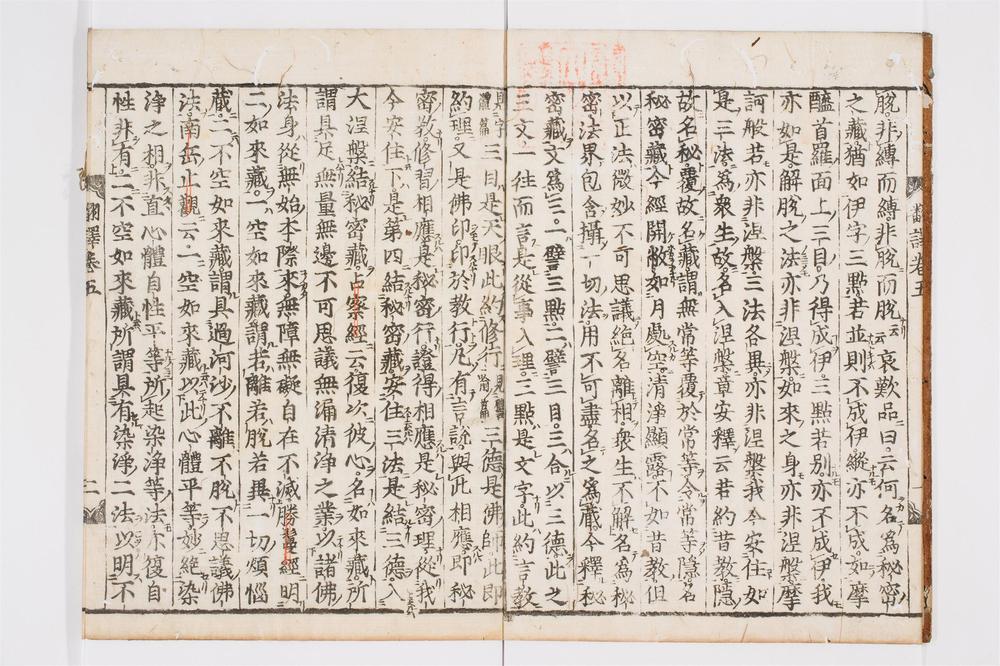 脱。非縛而縛。非脱而脱。云云哀歎品曰。云何名爲秘密
之藏。猶如伊字三點。若並則不成伊。縱亦不成。如摩
醯首羅面上三目。乃得成伊。三點若別亦不成伊。我
亦如是。解脱之法亦非涅槃。如來之身亦非涅槃。摩
訶般若亦非涅槃。三法各異亦非涅槃。我今安住如
是三法。爲衆生故。名入涅槃。章安釋云。若約昔教。隱
故名秘。覆故名藏。謂無常等覆於常等。令常等隱。名
秘密藏。今經開敞。如月處空。清淨顯露。不如昔教。但
以正法微妙不可思議。絶名離相。衆生不解。名爲秘
密。法界包含攝一切法。用不可盡。名之爲藏。今釋秘
密藏文爲三。一譬三點。二譬三目。三合以三德。此之
三文。一往而言。是從事入理。三點是文字。此約言教
三目是天眼。此約修行。三德是佛師。此即
約理。又是佛印。印於教行。凡有言説。與此相應。即秘
密教。修習相應。是秘密行。證得相應。是秘密理。從我
今安住下。是第四結秘密藏。安住三法。是結三德。入
大涅槃。結秘密藏。占察經云。復次彼心名如來藏。所
謂具足無量無邊不可思議無漏清淨之業。以諸佛
法身從無始本際來。無障無礙自在不滅。勝鬘經明
二如來藏。一空如來藏。謂若離若脱若異一切煩惱
藏。二不空如來藏。謂具過河沙不離不脱不思議佛
法。南岳止觀云。一空如來藏。以此心體平等。妙絶染
淨之相。非直心體自性平等。所起染淨等法。亦復自
性非有。二不空如來藏。所謂具有染淨二法。以明不
翻譯卷五
一
翻譯卷五
二